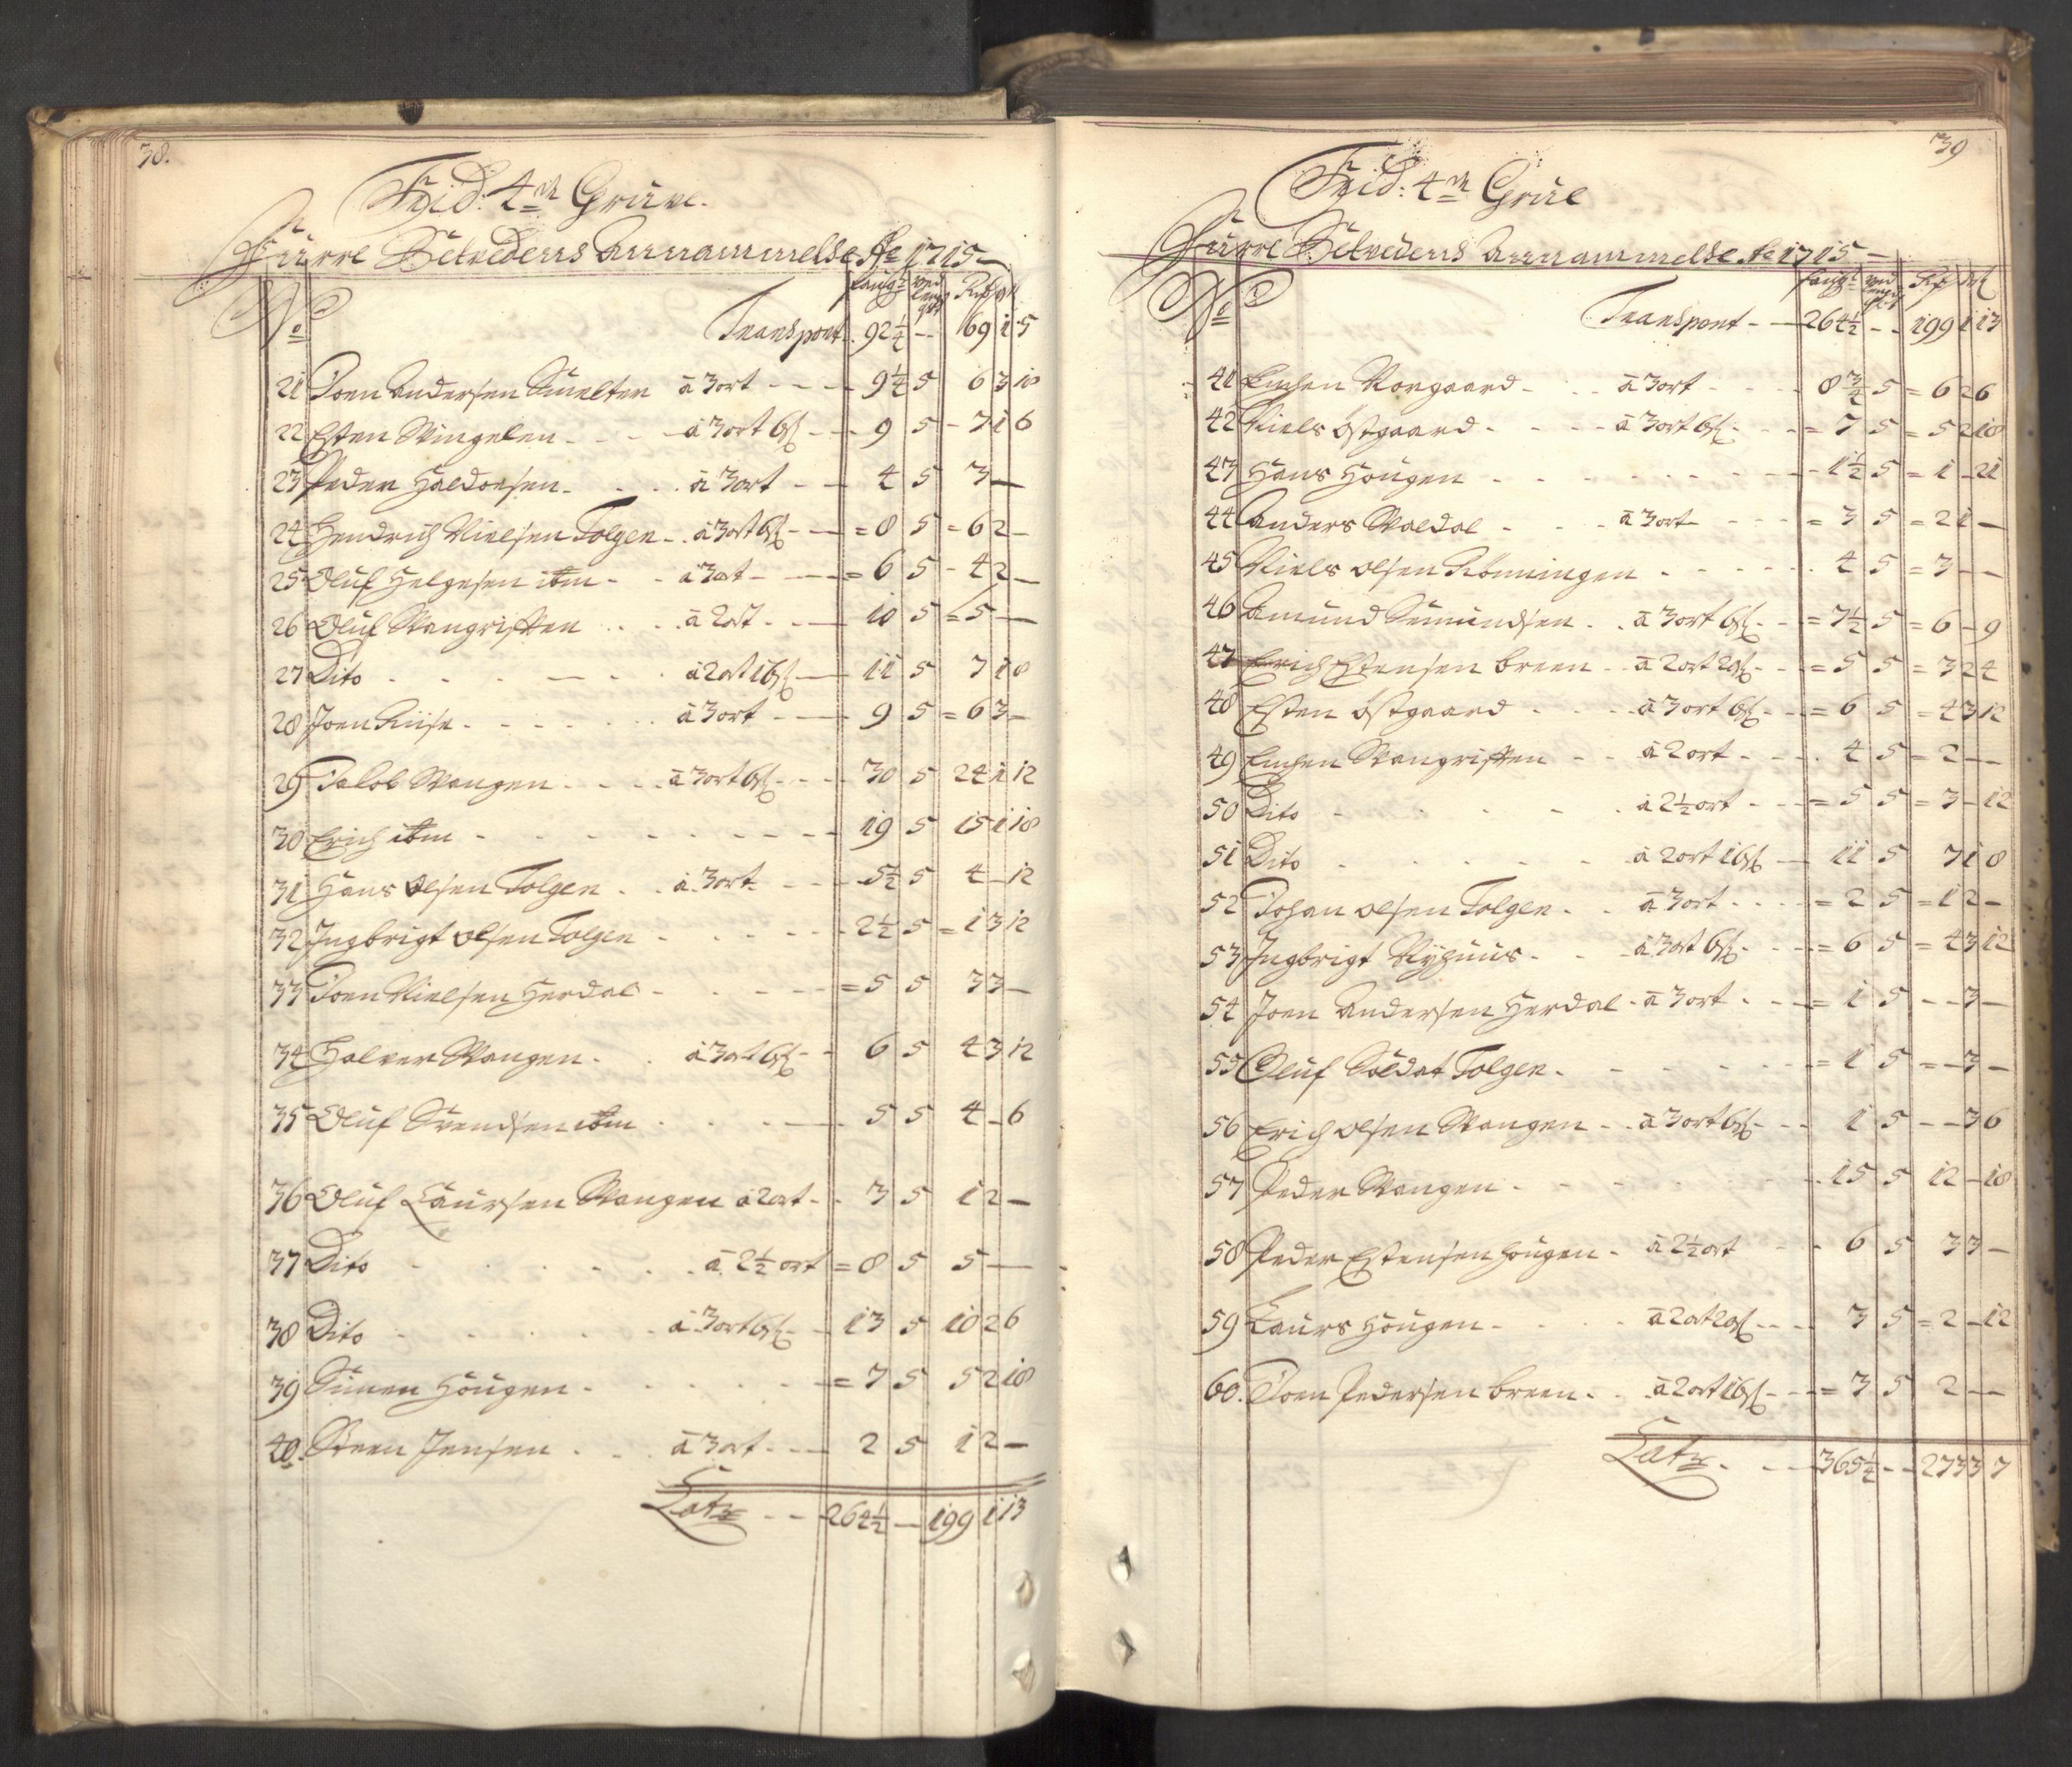 38.
Frid: 4de Gruve.
Furre Setvedens Annammelse Ao 1715
No faug: ved lengt qrt Rdr ort ß
Transport 92 1/4 -- 169 1 5
21 Joen Andersen Smelter à 3 ort - - - 9 1/4 5 6 3 18
22 Esten Vingelen - - - à 3 ort 6ß - - 9 5 - 7 1 6
23 Peder Haldorsen - - à 3 ort - - 4 5 3 —
24 Hendrich Nielsen Tolgen - à 3 ort 6ß - = 8 5 = 6 2 -
25 Oluf Helgesen ibm - - à 3 ort - - = 6 5 - 4 2 -
26 Oluf Vangrøften - - à 2 ort - - 10 5 = 5 —
27 Dito - - - à 2 ort 16ß - 11 5 7 1 8
28 Joen Riise - - - à 3 ort - - 9 5 = 6 3 -
29 Jacob Vangen - - - à 3 ort 6ß - - - 30 5 24 1 12
30 Erich ibm - - - 19 5 15 1 18
31 Hans Olsen Tolgen - - à 3 ort - - - 5 1/2 5 4 - 12
32 Ingbrigt Olsen Tolgen - - - 2 1/2 5 = 1 3 12
33 Joen Nielsen Herdal - - - = 5 5 3 3 -
34 Halver Vangen - - à 3 ort 6ß - - 6 5 4 3 12
35 Oluf Svendsen ibm - - - 5 5 4 - 6
36 Oluf Laursen Vangen à 2 ort - - 3 5 1 2 -
37 Dito - - - à 2 1/2 ort = 8 5 5 —
38 Dito - - - à 3 ort 6ß - - 13 5 10 2 6
39 Simen Hougen - - - = 7 5 5 2 18
40. Steen Jensen - - à 3 ort - - - 2 5 1 2 -
Latr - - 264 1/2 — 199 1 13
39
Frid: 4de Grue
Furre Setvedens Annammelse Ao 1715
No faug: ved lengt qrt Rdr ort ß
Transport - - 264 1/2 - - 199 1 13
41 Emhen Norgaard - - à 3 ort - - - 8 3/4 5 = 6 2 6
42 Niels Østgaard - - - à 3 ort 6ß - - = 7 5 = 5 2 18
43 Hans Hougen - - - 1 1/2 5 = 1 - 21
44 Anders Voldal - - à 3 ort - - - = 3 5 = 2 1 -
45 Niels Olsen Rønningen - - - 4 5 = 3 - -
46 Amund Semundsen - - à 3 ort 6ß - - = 7 1/2 5 = 6 - 9
47 Erich Estensen breen - - à 2 ort 20ß - - = 5 5 = 3 2 4
48 Esten Østgaard - - - à 3 ort 6ß - - = 6 5 = 4 3 12
49 Emhen Vangrøften - - à 2 ort - - - 4 5 = 2 - -
50 Dito - - - à 2 1/2 ort - - = 5 5 = 3 - 12
51 Dito - - - à 2 ort 16ß - - 11 5 7 1 8
52 Johan Olsen Tolgen - - à 3 ort - - - = 2 5 = 1 2 -
53 Ingbrigt Nyhuus - - à 3 ort 6ß - - = 6 5 = 4 3 12
54 Joen Andersen Herdal - à 3 ort - - - = 1 5 - - 3 -
55 Oluf Soldat Tolgen - - - = 1 5 = - 3 -
56 Erich Olsen Vangen - - à 3 ort 6ß - - - 1 5 - - 3 6
57 Peder Vangen - - - 15 5 12 - 18
58 Peder Estensen Hougen - à 2 1/2 ort - - 6 5 3 3 -
59 Laurs Hougen - - - à 2 ort 20ß - - 3 5 = 2 - 12
60. Joen Pedersen breen - - à 2 ort 16ß - - = 3 5 2 - -
Latr - - 365 1/4 - - 273 3 7